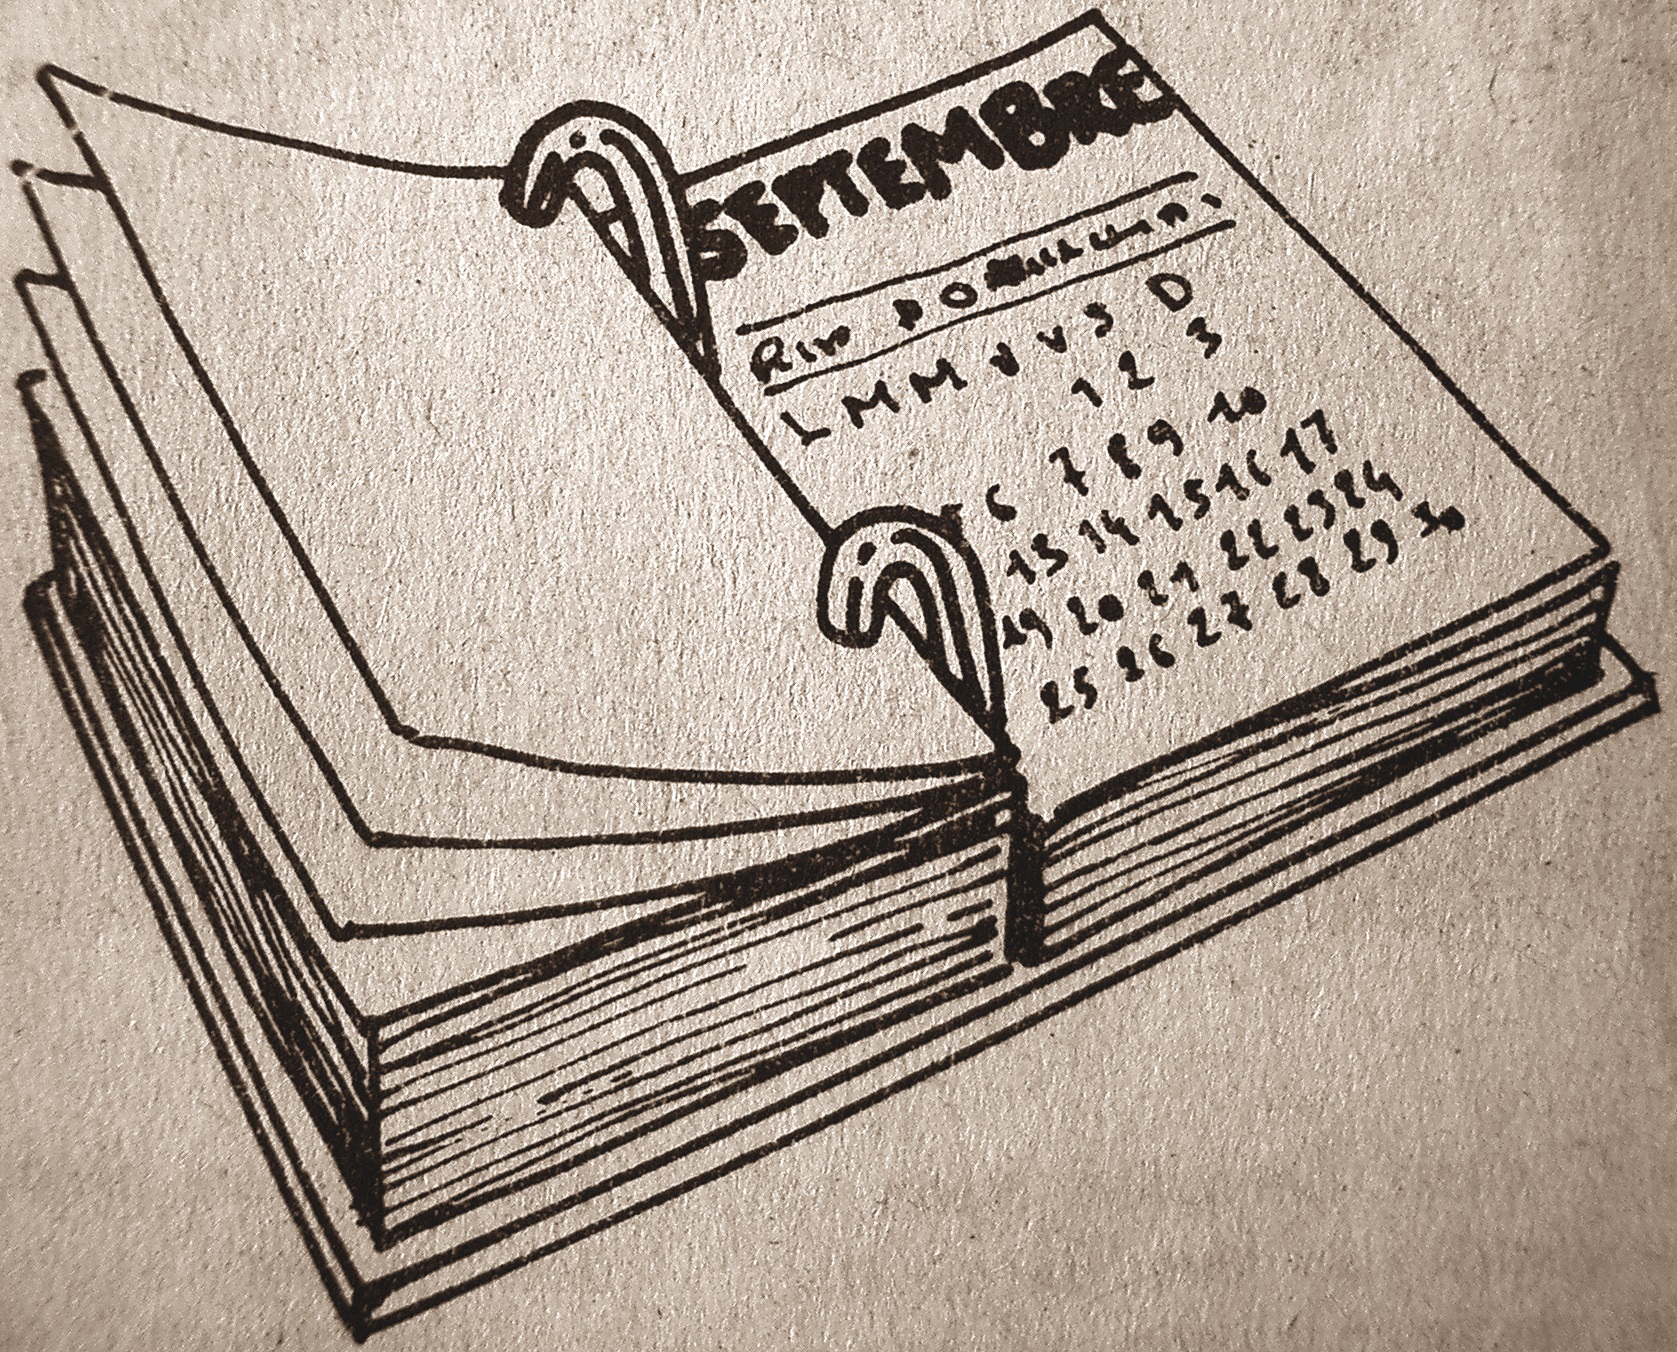 SEPTEMBRE
L M M V S D
1 2 3
6 7 8 9 10
13 14 15 16 17
19 20 21 22 23 24
25 26 27 28 29 30